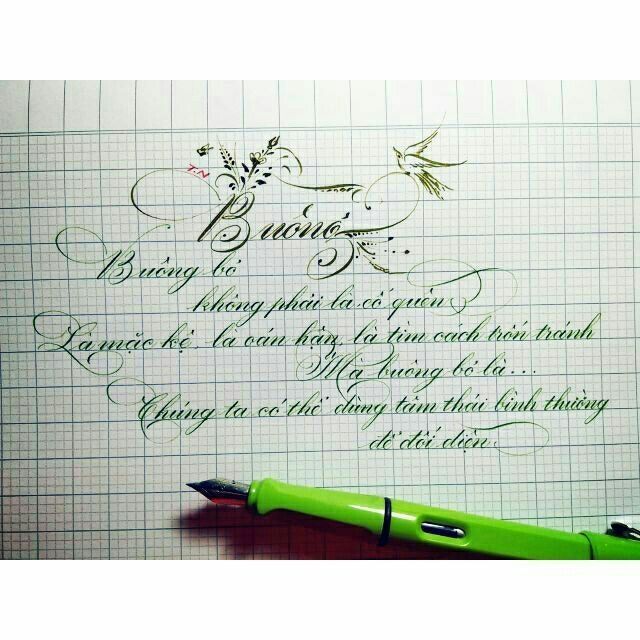 T.N
Buông
Buông bỏ
không phải là cố quên
Là mặc kệ, là oán hận, là tìm cách trốn tránh
Mà buông bỏ là...
Chúng ta có thể dùng tâm thái bình thường
để đối diện.